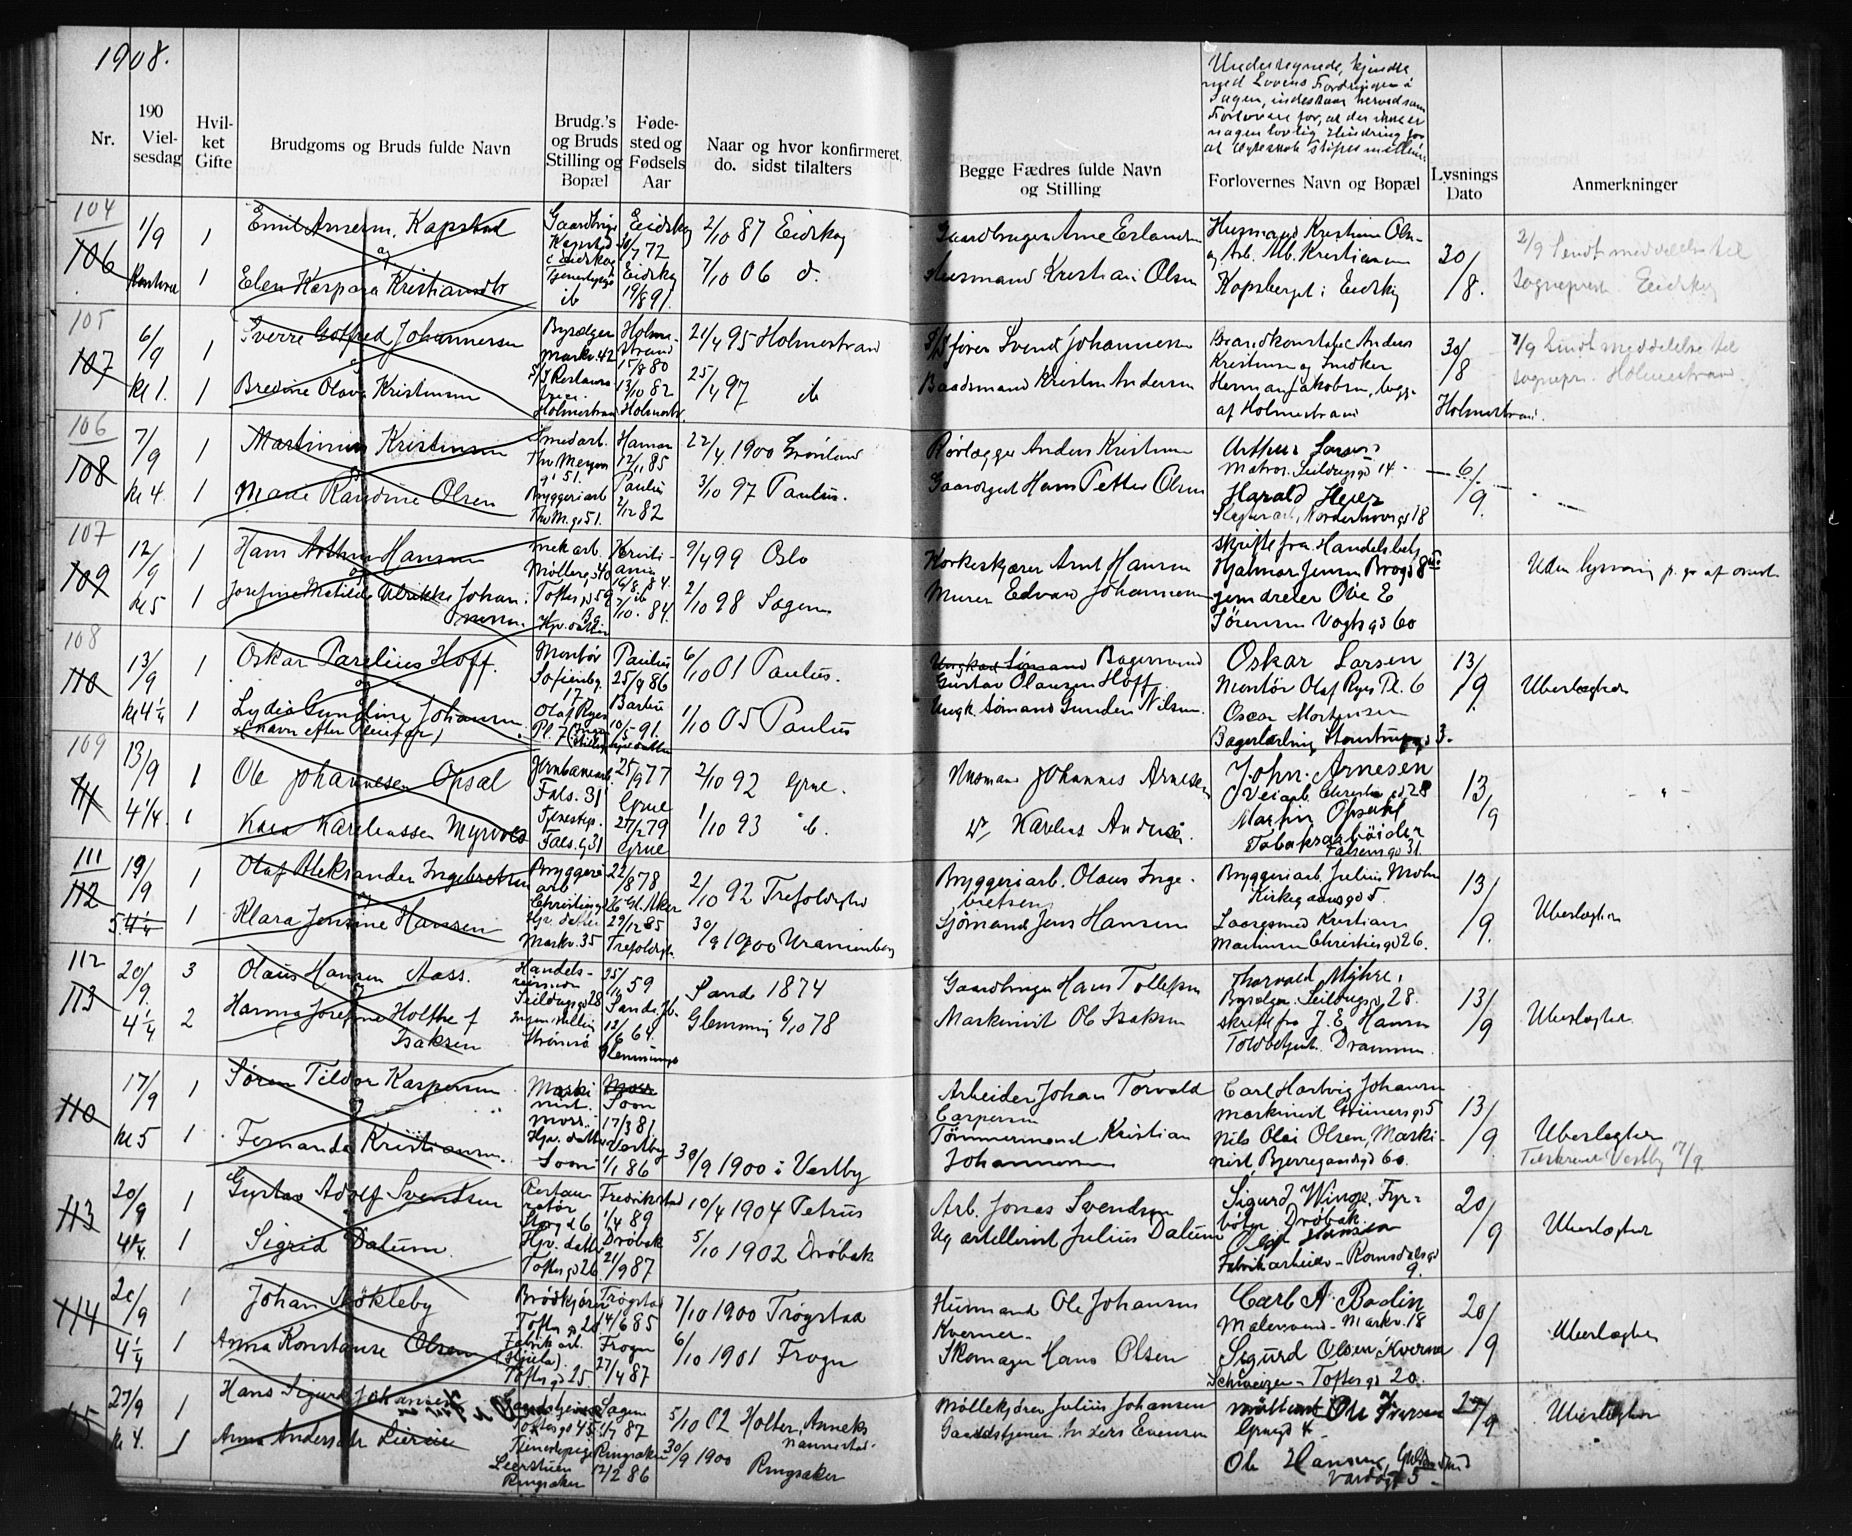 1908.
Nr.
190
Vielsesdag
Hvilket Gifte
Brudgoms og Bruds fulde Navn
Brudg.'s og Bruds Stilling og Bopæl
Fødested og Fødsels Aar
Naar og hvor konfirmeret,
do. sidst tilalters
Begge Fædres fulde Navn
og Stilling
Undertegnede, kjendte
med Lovens Fordringer i
Sagen, indestaar herved som
Forlovere for, at der ikke er
nogen lovlig Hindring for
at Ægteskab
Forlovernes Navn og Bopæl
Lysnings Dato
Anmerkninger
104
106
1/9
1
Emil Arnesen Kapstad
og
1
Elen Kaspara Kristiansdtr
Eidskog
/7 72
Eidskog
19/8 91.
2/10 87 Eidskog
7/10 06 d.
Gaardbruger Arne Erlandsen
Husmand Kristian Olsen
Husmand Kristian Olsen
Kapsberget i Eidskog
30/8.
2/9 Sendt meddelelse til
Sogneprest Eidskog
105
107
6/9
kl 1.
1
Sverre Gotfred Johannesen
1
Bredine Olava Kristensen
Byselger
Markv. 42
Holmestrand
Holmestrand
15/8 80
13/10 82
Holmestr.
21/4 95 Holmestrand
25/4 97 ib
Svend Johannesen
Baadsmand Kristen Andersen
Brandkonstabel Anders
Kristensen og Snedker
Herman Jakobsen, begge
af Holmestrand
30/8
Holmestrand.
7/9 Sendt meddelelse til
sognepr. Holmestrand
106
108
7/9
kl 4.
1
Martinius Kristensen
1
Marie Randine Olsen
Smedarb.
Thv Meyers
g 51.
Bryggeriarb
Thv M.gd 51.
Hamar
12/11 85
Paulus
2/12 82
22/4 1900 Grønland
3/10 97 Paulus.
Rørlægger Anders Kristensen
Gaardsgut Hans Petter Olsen
Arthur Larsen
Matros. Seildugsgd 14
Harald Heier
Nordenhovsgd 18
6/9.
107
109
12/9
kl 5
1
Hans Arthur Hansen
og
1
Josefine Matilde Ulrikke Johannesen.
Møllerg. 40
Toftesgd 59
Kristiania
16/8 84.
ib
7/10. 84.
9/4 99 Oslo
2/10 98 Sagene
Korkeskjærer Arnt Hansen
Murer Edvard Johannesen
skriftl fra Handelsbetj
Hjalmar Jensen Brogd 8
Jerndreier Ove E
Sørensen Vogtsgd 60
Uden lysning p. gr af
108
110
13/9
kl 4 1/4
1
Oskar Parelius Hoff.
og
1
Lydia Gundine Johansen
(Navn efter Pleiefar)
Montør
Sofienbg.
17
Olaf Ryes
Pl. 7
Paulus
25/9 86
10/5 91.
6/10 01 Paulus.
1/10 05 Paulus
Bagersvend
Gustav Olausen Hoff.
Ungk. sømand Gunder Nilsen
Oskar Larsen
Montør Olaf Ryes Pl. 6
Oscar Mortensen
Bagerlærling Stenstrupgd 3.
13/9.
Uberlagten
109
111
13/9
4 1/4.
1
Ole Johannesen Opsal
1
Kaia Kareliussen Myrvold
Jernbanearb.
Fals. 31
Tjenestep.
Fals. g 31
25/9 77
Grue
27/2 79
Grue
2/10 92 Grue.
1/10 93 ib.
Husmand Johannes Arnesen
Karelius Andersen.
John. Arnesen
Veiarb. Christies gd 28
Martin Opsahl
Tobaksarbeider
Falsensgd 31.
13/9
- " -
111
112
19/9
5. 4 1/4
1
Olaf Aleksander Ingebretsen
og
1
Klara Jensine Hansen
Bryggeri
arb
Christiesgd 26
Hjv. datter
Markv. 35
22/8 78
Gl. Aker
29/12 85
Trefoldigh.
2/10 92 Trefoldighed
30/9 1900 Uranienborg
Bryggeriarb. Olaus Inge-
bretsen
Sjømand Jens Hansen
Bryggeriarb. Julius Mohn
Kirkegaardsgd 5.
Laagsmed Kristian
Martinsen Christiesgd 26.
13/9.
Uberlagten
112
113
20/9.
4 1/4
3
Olaus Hansen Aass.
2
Hanna Josefine Holthe f
Isaksen
Handels-
reisende
Seildugsgd 28
Ingen stilling
Strømsø
59
Sande Jb.
13/6 64.
Glemminge
Sande 1874
Glemming 6/10 78
Gaardbruger Hans Tollefsen
Maskinist Ole Isaksen
Thorvald Myhre,
Byselger. Seildugsgd 28.
skriftl fra J. E. Hansen
Toldbetjent. Drammen.
13/9
Uberlagten.
110
17/9
kl 5
1
Søren Tildor Kaspersen
og
1
Fernanda Kristiansen.
Maskinist.
Moss.
Hjv. datter
Soon
Moss
Soon
17/3 81
Vestby
1/1 86
30/9 1900 i Vestby
Arbeider Johan Torvald
Caspersen
Tømmermand Kristian
Johannesen
Carl Hartvig Johansen
Maskinist Grünersgd 5
Nils Olai Olsen, Maski-
nist, Bjerregaardsgd 60.
13/9
Uberlagten
Tilskrevet Vestby 17/9.
113
20/9
4 1/4.
1
Gustav Adolf Svendsen
1
Sigrid Dalum.
Restauratør
Storgd 6
Hjv. datter
Toftesgd 26.
Fredrikstad
1/4 89
Drøbak
21/9 87
10/4 1904 Petrus
5/10 1902 Drøbak
Arb. Jonas Svendsen
Ug artillerist Julius Dalum
Sigurd Winge, Fyr-
bøter Drøbak.
Olaf Hansen
Fabrikarbeider - Romsdalsgd
9.
20/9
Uberlagten
114
20/9
4 1/4
1
Johan Stökleby
1
Anna Konstanse Olsen
Brødkjører
Toftes gd 20
Fabrik arb.
(Hjula).
Toftesgd 25
Trøgstad
14/6 85
Frogn
27/4 87
7/10 1900 Trøgstad
6/10 1901 Frogn
Husmand Ole Johansen
Kverner-
Skomager Hans Olsen
Carl A. Bodin
Malersvend - Markv. 18
Sigurd Olsen Kverner
Schweizer - Toftesgd 20.
20/9
Uberlagten
115
27/9
kl 4.
1
Hans Sigurd Johansen
1
Anna Andersdtr Lierstuen
Toftesgd 45
Tjenestepige
Lierstuen
Ringsaker
Sagene
/7 87
Ringsaker
12/2 86
5/10 02 Holter, Anneks
Nannestad.
30/9 1900 Ringsaker
Møllekjører Julius Johansen
Gaardstjener Anders Evensen
Ole Iversen
Ole Hansen,
Vardøgt 5 -
27/9
Uberlagten